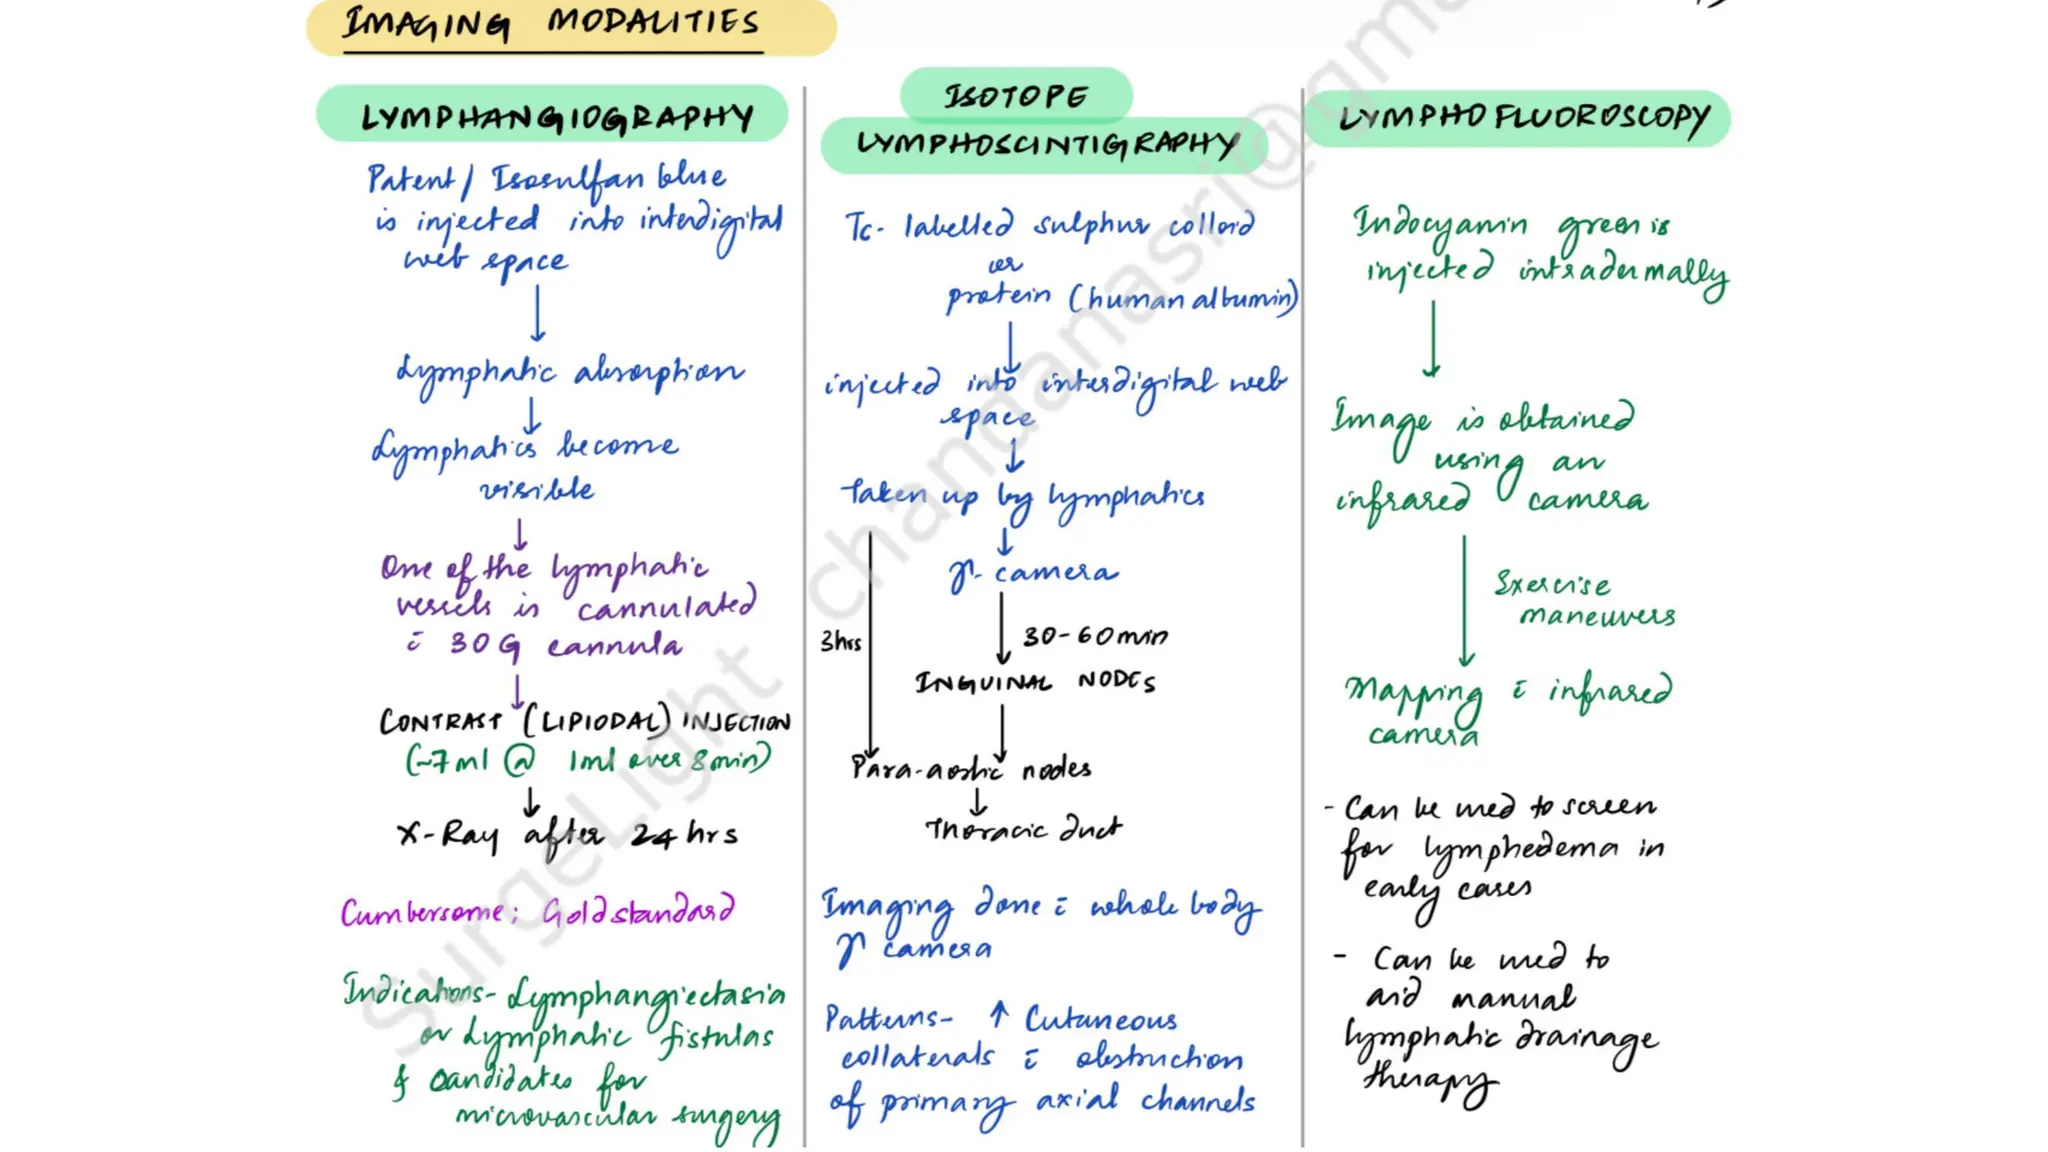 IMAGING MODALITIES
LYMPHANGIOGRAPHY
Patent / Isosulfan blue
is injected into interdigital
web space
Lymphatic absorption
Lymphatics become
visible
One of the lymphatic
vessels is cannulated
c̄ 30 G cannula
CONTRAST (LIPIODAL) INJECTION
(~7ml @ 1ml over 8min)
X-Ray after 24 hrs
Cumbersome; Gold standard
Indications- Lymphangiectasia
or Lymphatic fistulas
& candidates for
microvascular surgery
ISOTOPE
LYMPHOSCINTIGRAPHY
Tc- labelled sulphur colloid
or
protein (human albumin)
injected into interdigital web
space
Taken up by lymphatics
γ- camera
3hrs
30-60min
INGUINAL NODES
Para-aortic nodes
Thoracic duct
Imaging done c̄ whole body
γ camera
Patterns- ↑ Cutaneous
collaterals c̄ obstruction
of primary axial channels
LYMPHOFLUOROSCOPY
Indocyanin green is
injected intradermally
Image is obtained
using an
infrared camera
Exercise
maneuvers
Mapping c̄ infrared
camera
- Can be used to screen
for lymphedema in
early cases
- Can be used to
aid manual
lymphatic drainage
therapy
SurgeLight chandanasri@gma